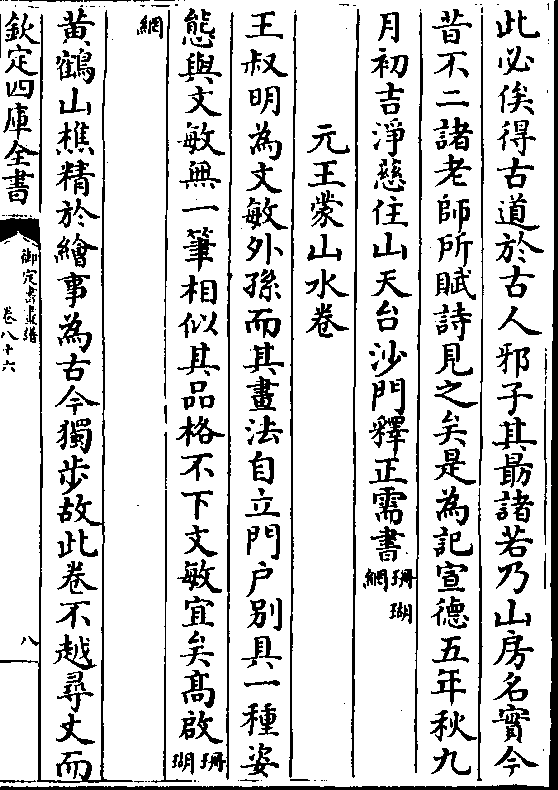 此必俟得古道於古人邪子其勗諸若乃山房名實今
昔不二諸老師所賦詩見之矣是為記宣德五年秋九
月初吉淨慈住山天台沙門釋正需書珊瑚網
元王蒙山水卷
王叔明為文敏外孫而其畫法自立門户别具一種姿
態與文敏無一筆相似其品格不下文敏宜矣髙啟珊瑚
網
黄鶴山樵精於繪事為古今獨步故此卷不越尋丈而
欽定四庫全書
御定書畫譜
卷八十六
八